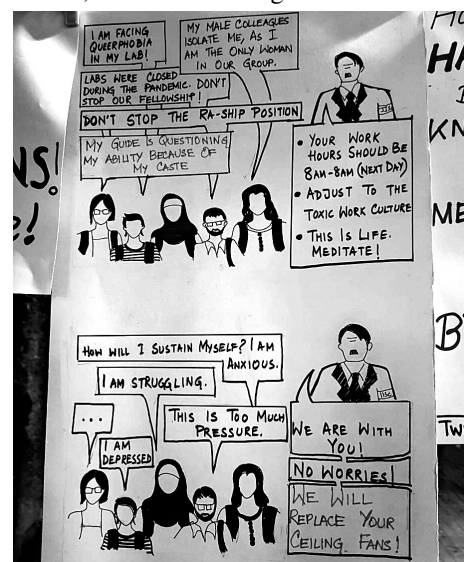 I AM FACING
QUEERPHOBIA
IN MY LAB!
MY MALE COLLEAGUES
ISOLATE ME, AS I
AM THE ONLY WOMAN
IN OUR GROUP.
LABS WERE CLOSED
DURING THE PANDEMIC. DON'T
STOP OUR FELLOWSHIP!
DON'T STOP THE RA-SHIP POSITION
MY GUIDE IS QUESTIONING
MY ABILITY BECAUSE OF
MY CASTE
• YOUR WORK
HOURS SHOULD BE
8AM-8AM (NEXT DAY)
• ADJUST TO THE
TOXIC WORK CULTURE
• THIS IS LIFE.
MEDITATE!
HOW WILL I SUSTAIN MYSELF? I AM
ANXIOUS.
I AM STRUGGLING.
...
THIS IS TOO MUCH
PRESSURE.
I AM
DEPRESSED
IISc
WE ARE WITH
YOU!
NO WORRIES!
WE WILL
REPLACE YOUR
CEILING FANS!